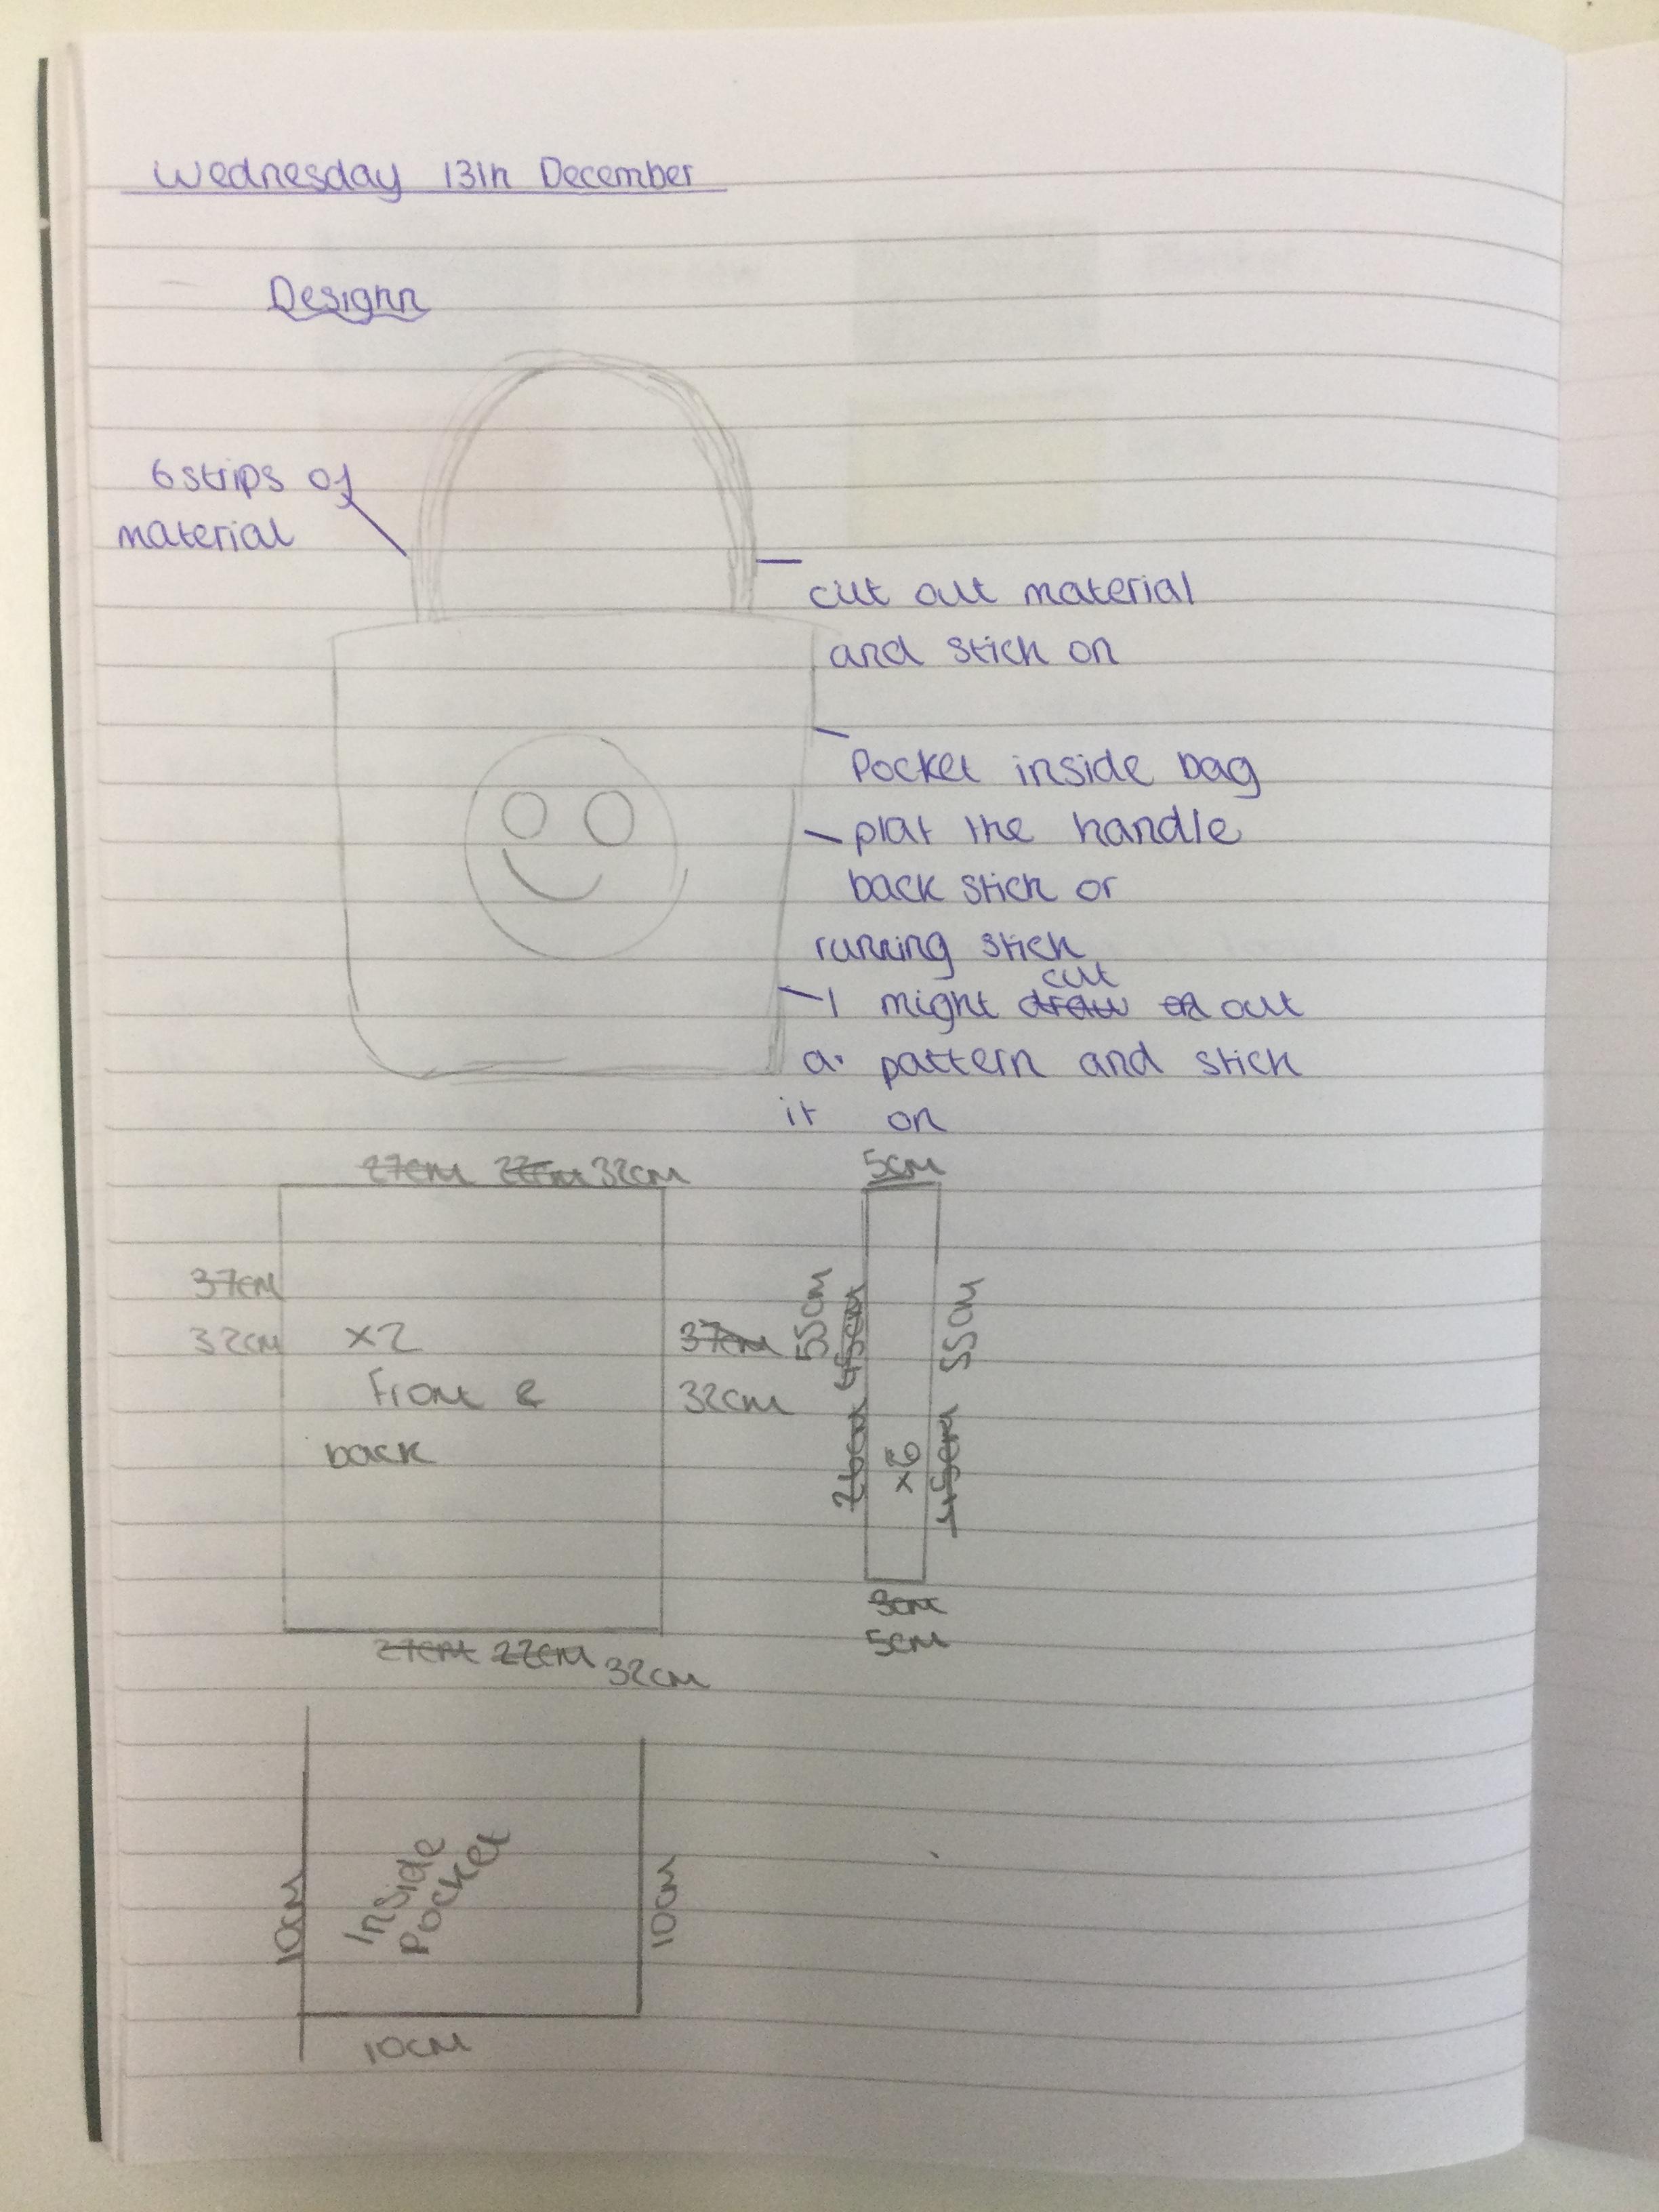 Wednesday 13th December
Designn
6 strips of
material
cut out material
and stick on
Pocket inside bag
plat the handle
back stich or
running stich
cut
I might draw on out
a pattern and stich
it on
27cm 22cm 32cm
5cm
37cm
32cm
x2
Front &
back
37cm
32cm
55cm
45cm
26cm
x6
55cm
45cm
3cm
5cm
27cm 22cm 32cm
Inside
Pocket
10cm
10cm
10cm